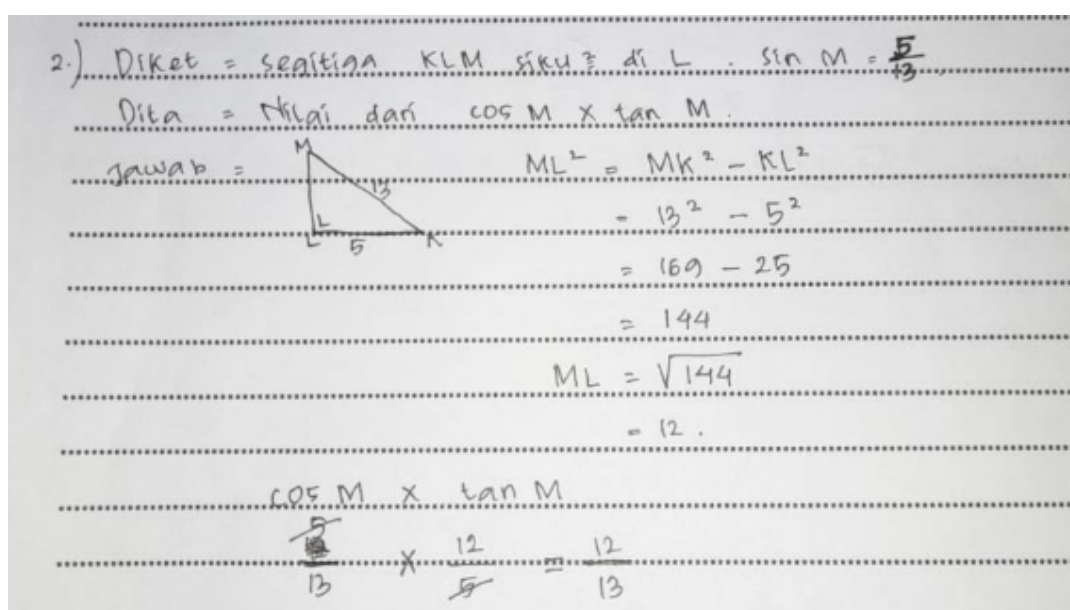 2.) Diket = segitiga KLM siku² di L . sin M = 5/13
Dita = Nilai dari cos M x tan M .
Jawab =
M
13
L
L 5 K
ML² = MK² - KL²
= 13² - 5²
= 169 - 25
= 144
ML = √144
= 12 .
cos M x tan M
5/13 x 12/5 = 12/13